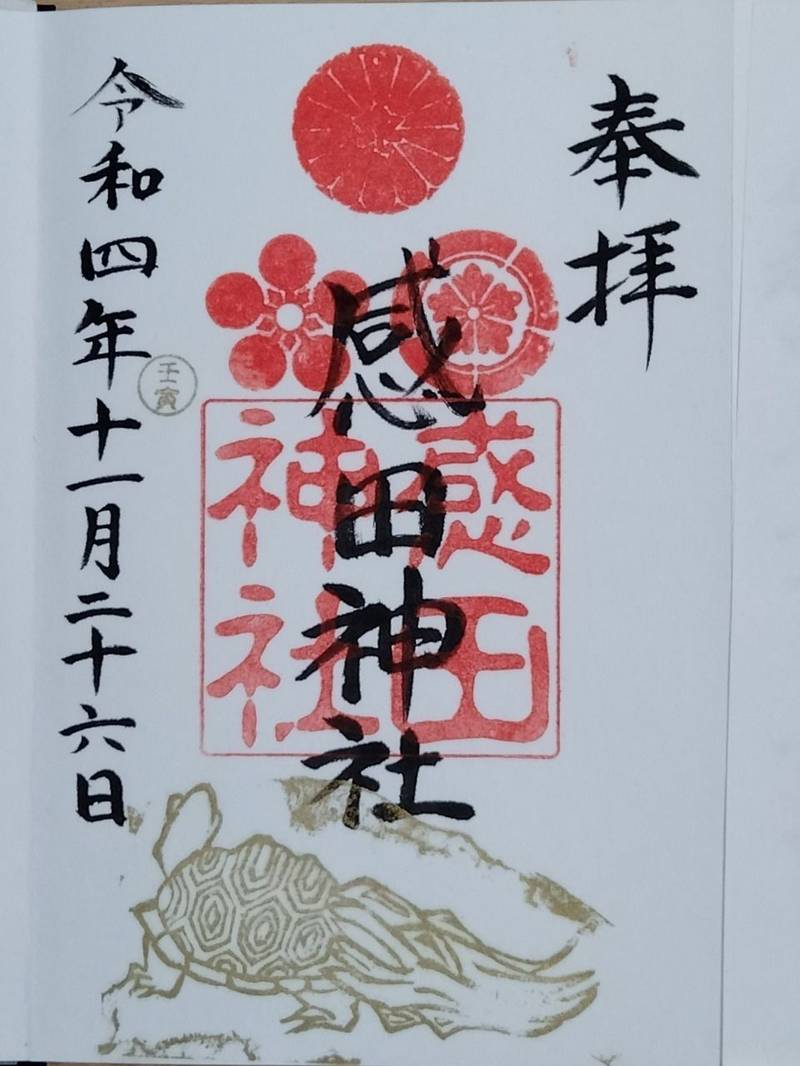 奉拝
感田神社
感田
神社
令和四年十一月二十六日
壬寅